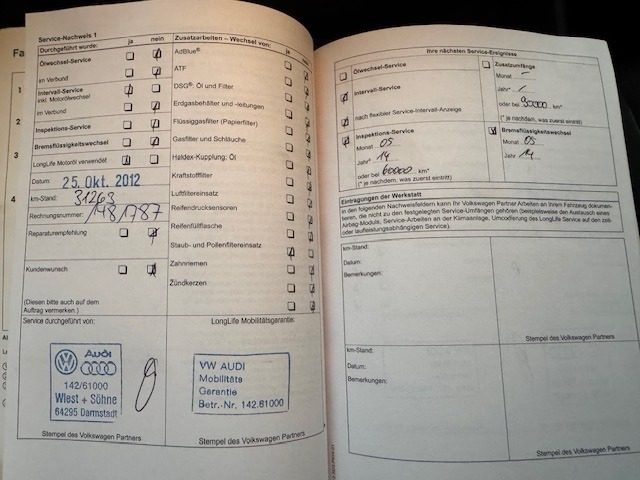 Service-Nachweis 1
Durchgeführt wurde: ja nein
Ölwechsel-Service
im Verbund
Intervall-Service
inkl. Motorölwechsel
im Verbund
Inspektions-Service
Bremsflüssigkeitswechsel
LongLife Motoröl verwendet
Datum: 25. Okt. 2012
km-Stand: 31263
Rechnungsnummer: 1481787
Reparaturempfehlung
Kundenwunsch
(Diesen bitte auch auf dem
Auftrag vermerken.)
Service durchgeführt von:
Audi
142/61000
Wiest + Söhne
64295 Darmstadt
Stempel des Volkswagen Partners
1
2
3
4
Zusatzarbeiten – Wechsel von: ja
AdBlue®
ATF
DSG®: Öl und Filter
Erdgasbehälter und -leitungen
Flüssiggasfilter (Papierfilter)
Gasfilter und Schläuche
Haldex-Kupplung: Öl
Kraftstofffilter
Luftfiltereinsatz
Reifendrucksensoren
Reifenfüllflasche
Staub- und Pollenfiltereinsatz
Zahnriemen
Zündkerzen
LongLife Mobilitätsgarantie:
VW AUDI
Mobilitäts
Garantie
Betr.-Nr. 142.61000
Stempel des Volkswagen Partners
Ihre nächsten Service-Ereignisse
Ölwechsel-Service
Intervall-Service
nach flexibler Service-Intervall-Anzeige
Inspektions-Service
Monat 05
Jahr* 14
oder bei 60000 km*
(* je nachdem, was zuerst eintritt)
Zusatzumfänge
Monat –
Jahr* –
oder bei 90000 km*
(* je nachdem, was zuerst eintritt)
Bremsflüssigkeitswechsel
Monat 05
Jahr 14
Eintragungen der Werkstatt
In den folgenden Nachweisfeldern kann Ihr Volkswagen Partner Arbeiten an Ihrem Fahrzeug dokumen-
tieren, die nicht zu den festgelegten Service-Umfängen gehören (beispielsweise den Austausch eines
Airbag-Moduls, Service-Arbeiten an der Klimaanlage, Umcodierung des LongLife Service auf den zeit-
oder laufleistungsabhängigen Service).
km-Stand:
Datum:
Bemerkungen:
Stempel des Volkswagen Partners
km-Stand:
Datum:
Bemerkungen:
Stempel des Volkswagen Partners